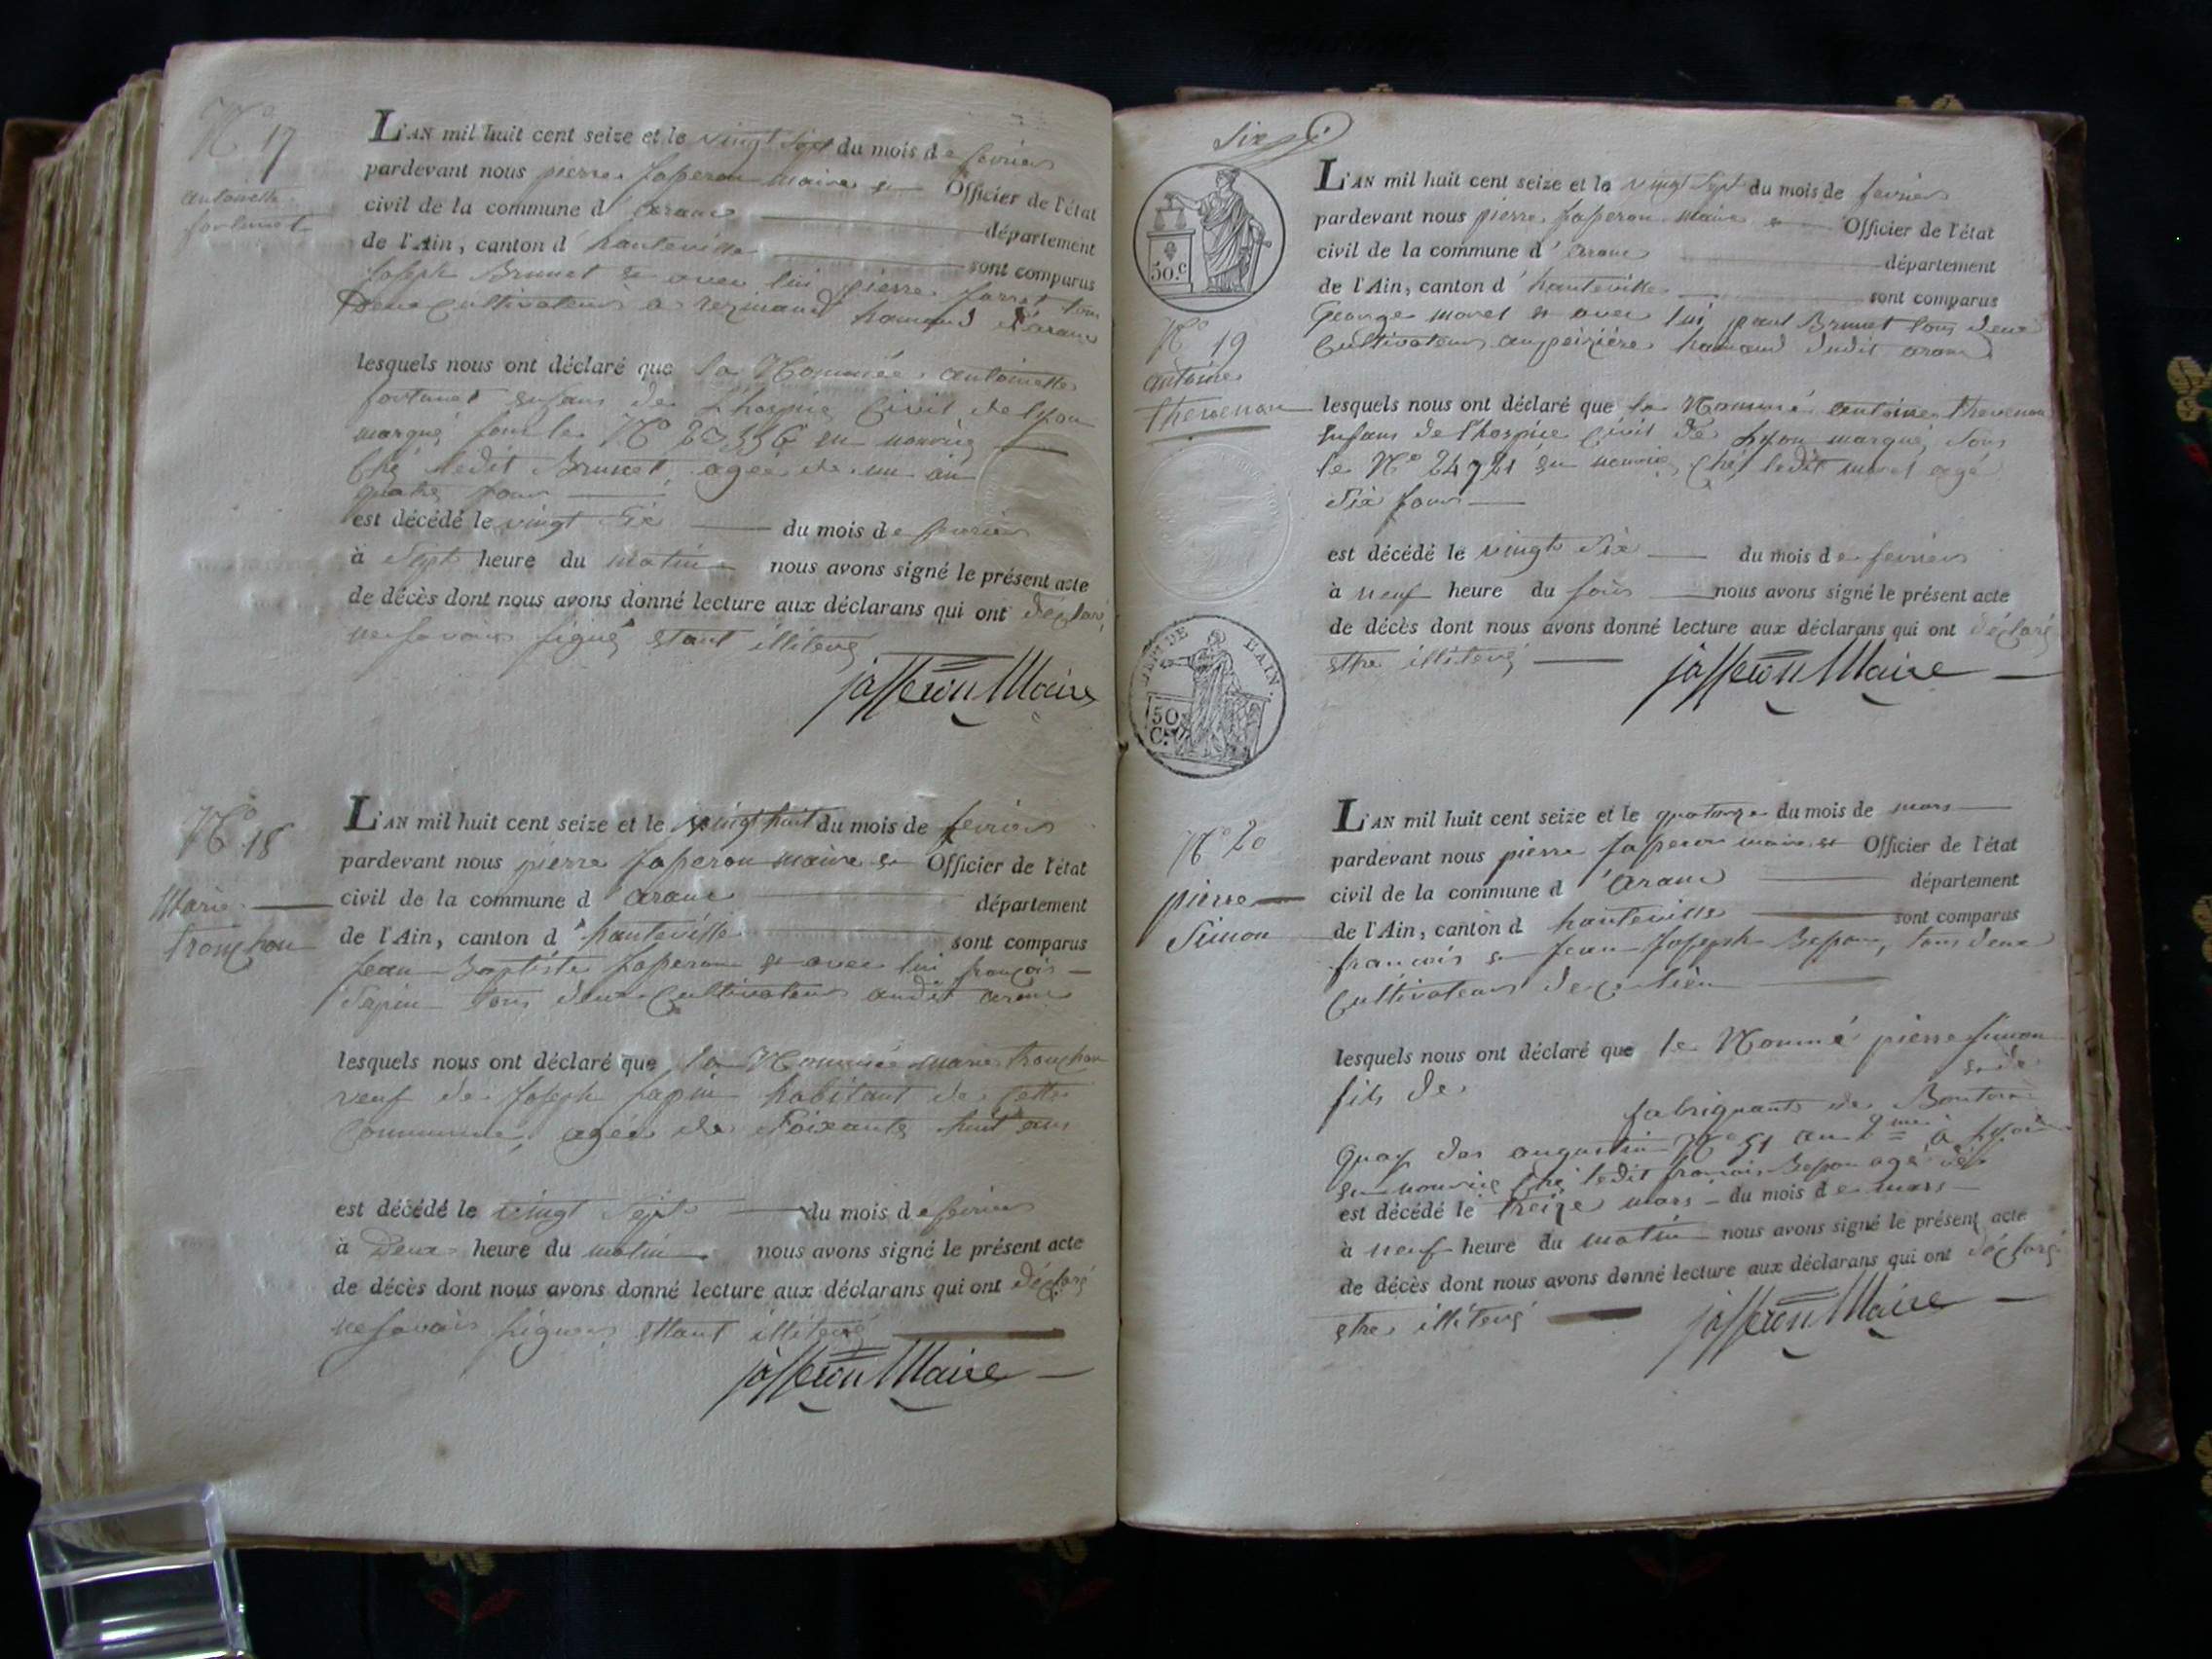 N° 17
antoinette
fortunet
L'AN mil huit cent seize et le vingt sept du mois de fevrier
pardevant nous pierre Jasperon maire et Officier de l'état
civil de la commune d'aranc département
de l'Ain, canton d'hauteville sont comparus
Joseph Brunet et avec lui pierre tous
Deux Cultivateurs a rezmand hamaud d'aranc
lesquels nous ont déclaré que la Nommée antoinette
fortunet enfans de l'hospice Civil de lyon
marqué sous le N° en nourice
Ché ledit Brunet, agée de un an
quatre jours
est décédé le vingt six du mois de fevrier
à Sept heure du matin nous avons signé le présent acte
de décès dont nous avons donné lecture aux déclarans qui ont déclaré
ne savoir signé étant illiteré
jasseron Maire
N° 18
Marie
tronchon
L'AN mil huit cent seize et le vingt huit du mois de fevrier
pardevant nous pierre Jasperon maire et Officier de l'état
civil de la commune d'aranc département
de l'Ain, canton d'hauteville sont comparus
Jean Baptiste Jasperon et avec lui françois
Sapin tous deux Cultivateurs audit aranc
lesquels nous ont déclaré que la Nommée marie tronchon
veuf de Joseph Sapin habitant de Cette
Commune, agée de Soixante huit ans
est décédé le vingt Sept du mois de fevrier
à Deux heure du matin nous avons signé le présent acte
de décès dont nous avons donné lecture aux déclarans qui ont déclaré
ne savoir signer étant illiteré
jasseron Maire
Six
50.c
N° 19
antoine
thevenon
L'AN mil huit cent seize et le vingt Sept du mois de fevrier
pardevant nous pierre Jasperon maire et Officier de l'état
civil de la commune d'aranc département
de l'Ain, canton d'hauteville sont comparus
George morel et avec lui paul Brunet tous deux
Cultivateurs hamaud dudit aranc
lesquels nous ont déclaré que le Nommé antoine thevenon
enfans de l'hospice Civil de lyon marqué sous
le N° 24721 en nourice Ché ledit morel agé
Six jours
est décédé le vingt Six du mois de fevrier
à neuf heure du soir nous avons signé le présent acte
de décès dont nous avons donné lecture aux déclarans qui ont déclaré
etre illiteré
jasseron Maire
DE BAIN.
50
C.
N° 20
pierre
Simon
L'AN mil huit cent seize et le quatorze du mois de mars
pardevant nous pierre Jasperon maire et Officier de l'état
civil de la commune d'aranc département
de l'Ain, canton d hauteville sont comparus
francois et Jean Joseph Besson, tous deux
Cultivateurs de ce lieu
lesquels nous ont déclaré que le Nommé pierre Simon
fils de et de
fabriquants de
Quay des augustin N° 51 au 2me à lyon
en nourice Ché ledit francois Besson agé
est décédé le treize mars du mois de mars
à neuf heure du matin nous avons signé le présent acte
de décès dont nous avons donné lecture aux déclarans qui ont déclaré
etre illiteré
jasseron Maire